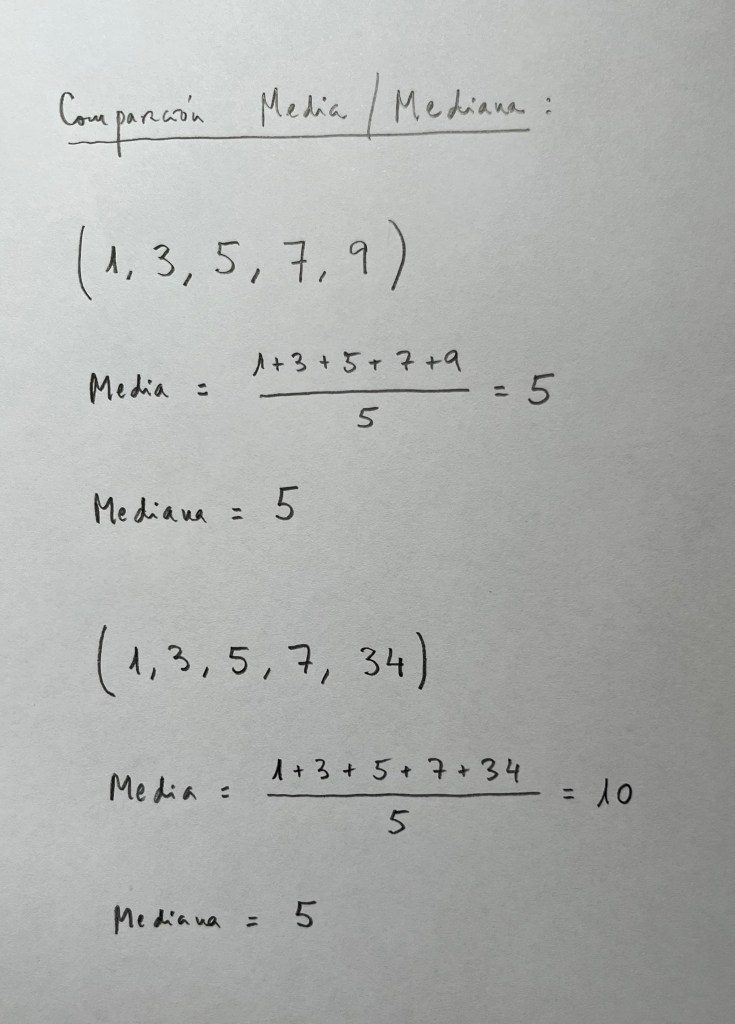 Comparación Media / Mediana :
(1, 3, 5, 7, 9)
Media = 1+3+5+7+9 / 5 = 5
Mediana = 5
(1, 3, 5, 7, 34)
Media = 1+3+5+7+34 / 5 = 10
Mediana = 5